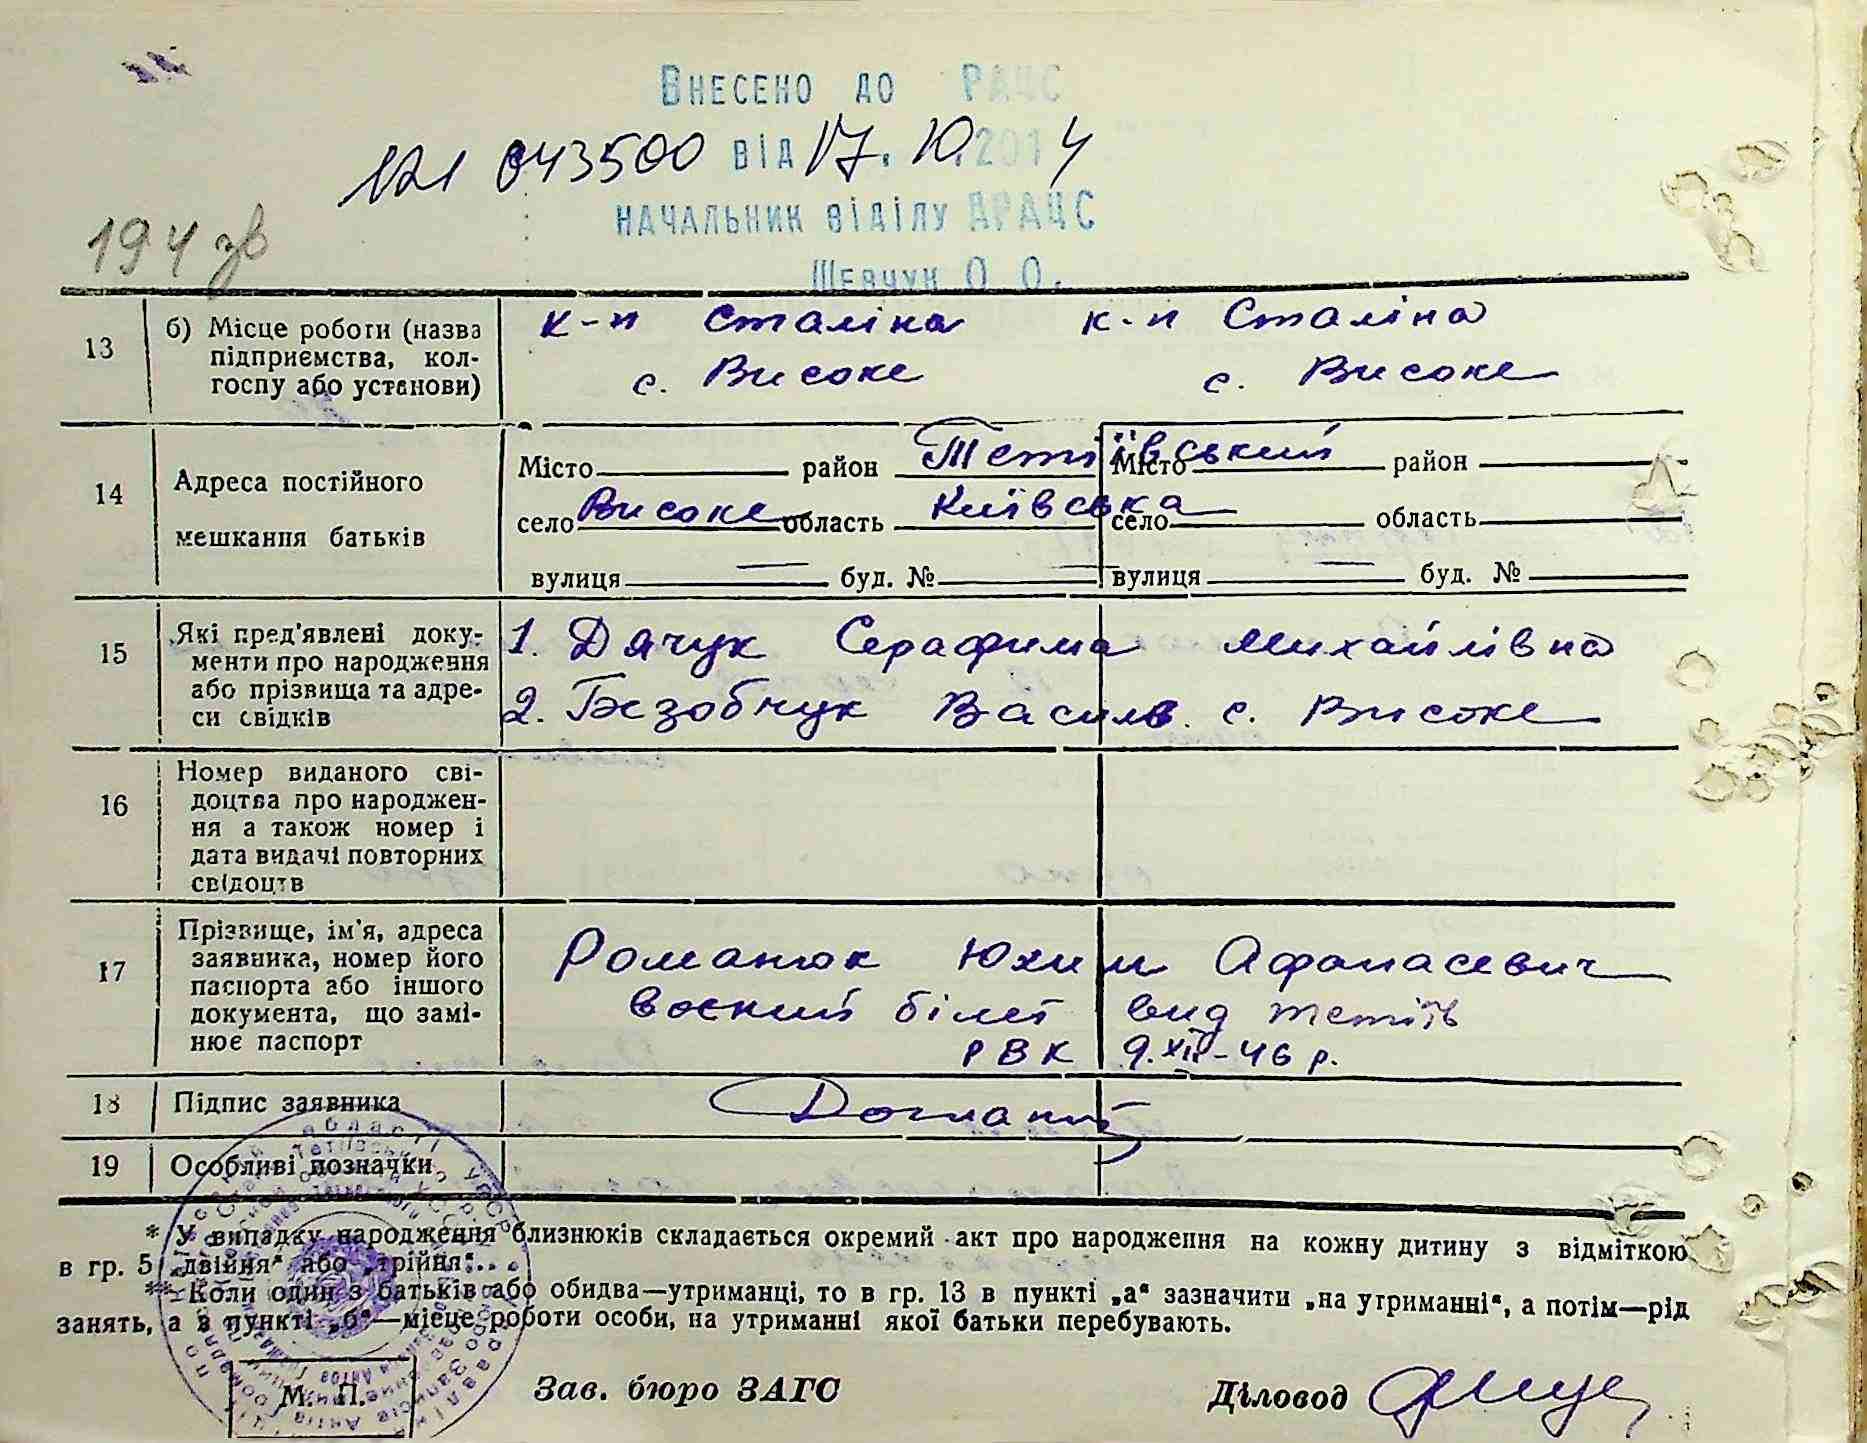 Внесено до РАЦС
121 043500 від 17.10.2014
начальник відділу ДРАЦС
Шевчук О. О.
194 зв
13 б) Місце роботи (назва
підприємства, кол-
госпу або установи)
к-п Сталіна к-п Сталіна
с. Високе с. Високе
14 Адреса постійного
мешкання батьків
Місто район Тетіївський Місто район
село Високе область Київська село область
вулиця — буд. № — вулиця — буд. №
15 Які пред'явлені доку-
менти про народження
або прізвища та адре-
си свідків
1. Дячук Серафима Михайлівна
2. Безобчук Василь. с. Високе
16 Номер виданого сві-
доцтва про народжен-
ня а також номер і
дата видачі повторних
свідоцтв
17 Прізвище, ім'я, адреса
заявника, номер його
паспорта або іншого
документа, що замі-
нює паспорт
Романюк Юхим Афанасевич
воєний білет вид Тетіїв
РВК 9.XII-46 р.
18 Підпис заявника
19 Особливі позначки
* У випадку народження близнюків складається окремий акт про народження на кожну дитину з відміткою
в гр. 5 „двійня“ або „трійня“...
** Коли один з батьків або обидва—утриманці, то в гр. 13 в пункті „а“ зазначити „на утриманні“, а потім—рід
занять, а в пункті „б“—місце роботи особи, на утриманні якої батьки перебувають.
М. П. Зав. бюро ЗАГС Діловод